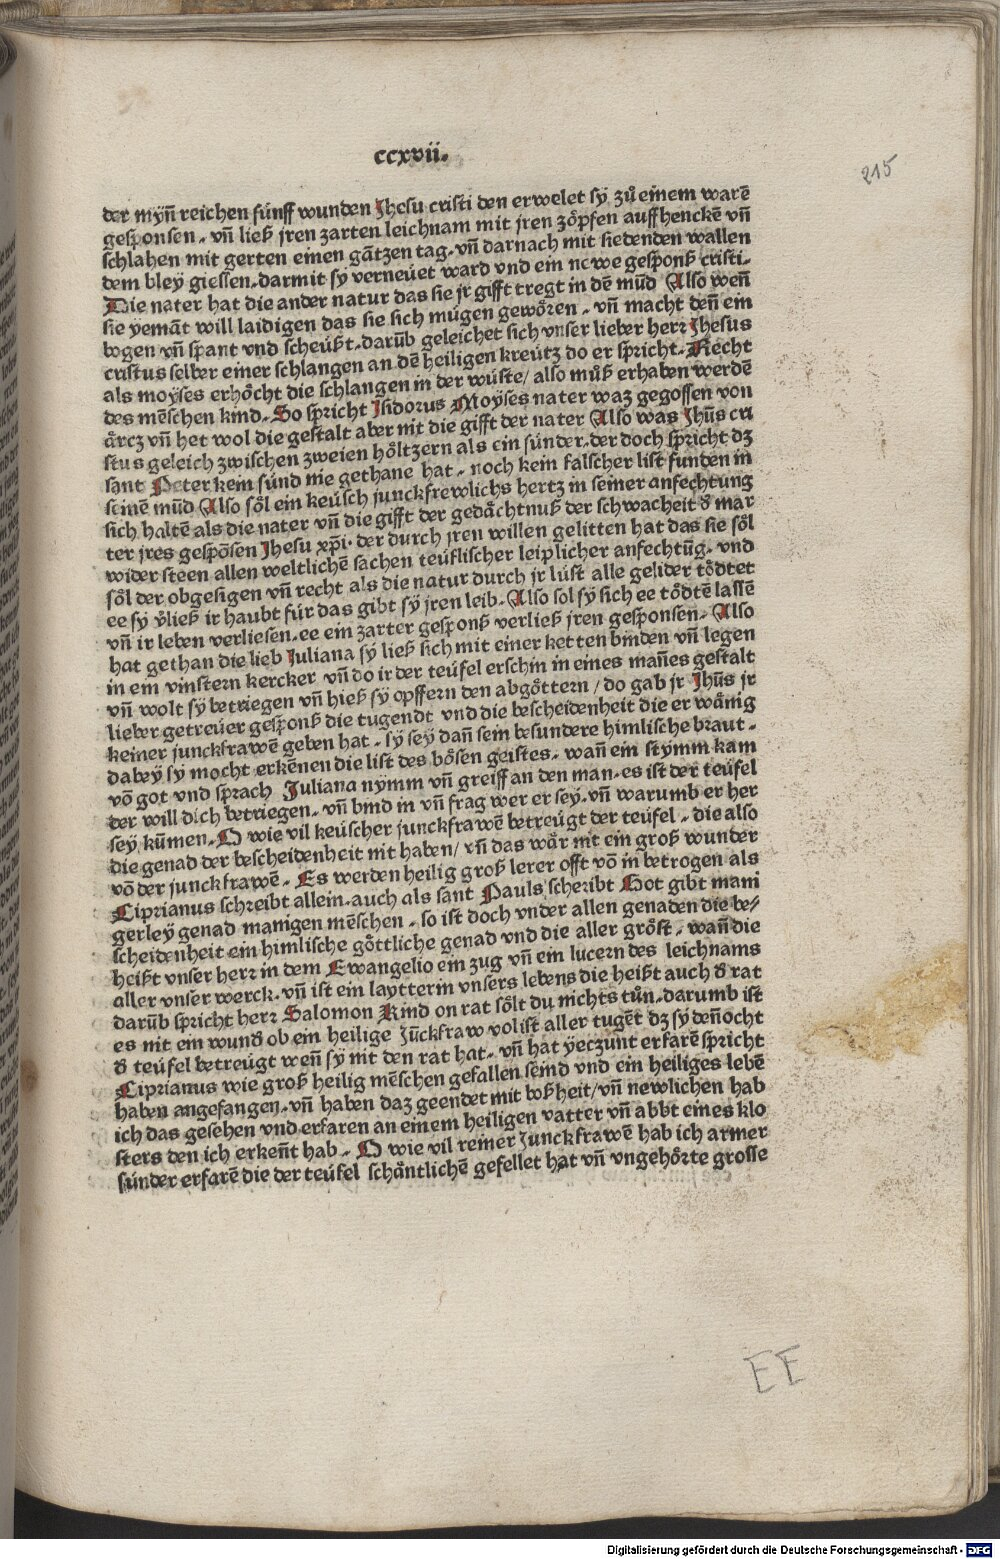 ccxvii.
215
der mỹn̄ reichen fúnff wunden Jhesu cristi den erwelet sÿ zů einem warē
gesponsen. vn̄ ließ jren zarten leichnam mit jren zőpfen auffhenckē vn̄
schlahen mit gerten einen gātzen tag. vn̄ darnach mit siedenden wallen
dem bley giessen. darmit sy verneúet ward vnd ein newe gesponß cristi.
Die nater hat die ander natur das sie jr gifft tregt in dē mūd Also wen̄
sie yemāt will laidigen das sie sich múgen gewőren. vn̄ macht den̄ ein
bogen vn̄ spant vnd scheúßt. darūb geleichet sich vnser lieber herr Jhesus
cristus selber einer schlangen an dē heiligen kreútz do er spricht. Recht
als moyses erhőcht die schlangen in der wúste/ also můß erhaben werdē
des mēschen kind. So spricht Isidorus Moyses nater waz gegossen von
árcz vn̄ het wol die gestalt aber nit die gifft der nater Also was Jhūs cri
stus geleich zwischen zweien hőltzern als ein súnder. der doch spricht dz
sant Peter kein súnd nie gethane hat. noch kein falscher list funden in
seinē mūd Also sől ein keúsch junckfrewlichs hertz in seiner anfechtung
sich haltē als die nater vn̄ die gifft der gedáchtnuß der schwacheit d̕ mar
ter jres gespōsen Jhesu xp̄i. der durch jren willen gelitten hat das sie sől
wider steen allen weltlichē sachen teúflischer leiplicher anfechtūg. vnd
sől der obgesigen vn̄ recht als die natur durch jr lúst alle gelider tődtet
ee sy v̕ließ ir haubt fúr das gibt sÿ jren leib. Also sol sÿ sich ee tődtē lassē
vn̄ ir leben verliesen. ee ein zarter gesponß verließ jren gesponsen. Also
hat gethan die lieb Juliana sÿ ließ sich mit einer ketten binden vn̄ legen
in ein vinstern kercker vn̄ do ir der teúfel erschin in eines man̄es gestalt
vn̄ wolt sÿ betriegen vn̄ hieß sÿ opffern den abgőttern/ do gab jr Jhūs jr
lieber getreúer gesponß die tugendt vnd die bescheidenheit die er wánig
keiner junckfrawē geben hat. sÿ sey dan̄ sein besundere himlische braut.
dabey sÿ mocht erkēnen die list des bősen geistes. wan̄ ein stymm kam
vō got vnd sprach Juliana nÿmm vn̄ greiff an den man. es ist der teúfel
der will dich betriegen. vn̄ bind in vn̄ frag wer er sey. vn̄ warumb er her
sey kūmen. O wie vil keúscher junckfrawē betreúgt der teúfel. die also
die genad der bescheidenheit nit haben/ vn̄ das wár nit ein groß wunder
vō der junckfrawē. Es werden heilig groß lerer offt vō in betrogen als
Ciprianus schreibt allein. auch als sant Pauls schreibt Got gibt mani
gerley genad manigen mēschen. so ist doch vnder allen genaden die be/
scheidenheit ein himlische gőttliche genad vnd die aller gróst. wan̄ die
heißt vnser herr in dem Ewangelio ein zug vn̄ ein lucern des leichnams
aller vnser werck. vn̄ ist ein laytterin vnsers lebens die heißt auch d̕ rat
darūb spricht herr Salomon Kind on rat sőlt du nichts tůn. darumb ist
es nit ein wund̕ ob ein heilige jūckfraw vol ist aller tugēt dz sÿ den̄ocht
d̕ teúfel betreúgt wen̄ sÿ nit den rat hat. vn̄ hat ÿeczunt erfarē spricht
Ciprianus wie groß heilig mēschen gefallen seind vnd ein heiliges lebē
haben angefangen. vn̄ haben daz geendet mit boßheit/ vn̄ newlichen hab
ich das gesehen vnd erfaren an einem heiligen vatter vn̄ abbt eines klo
sters den ich erken̄t hab. O wie vil reiner junckfrawē hab ich armer
súnder erfarē die der teúfel schántlichē gefellet hat vn̄ vngehőrte grosse
EE
Digitalisierung gefördert durch die Deutsche Forschungsgemeinschaft - DFG